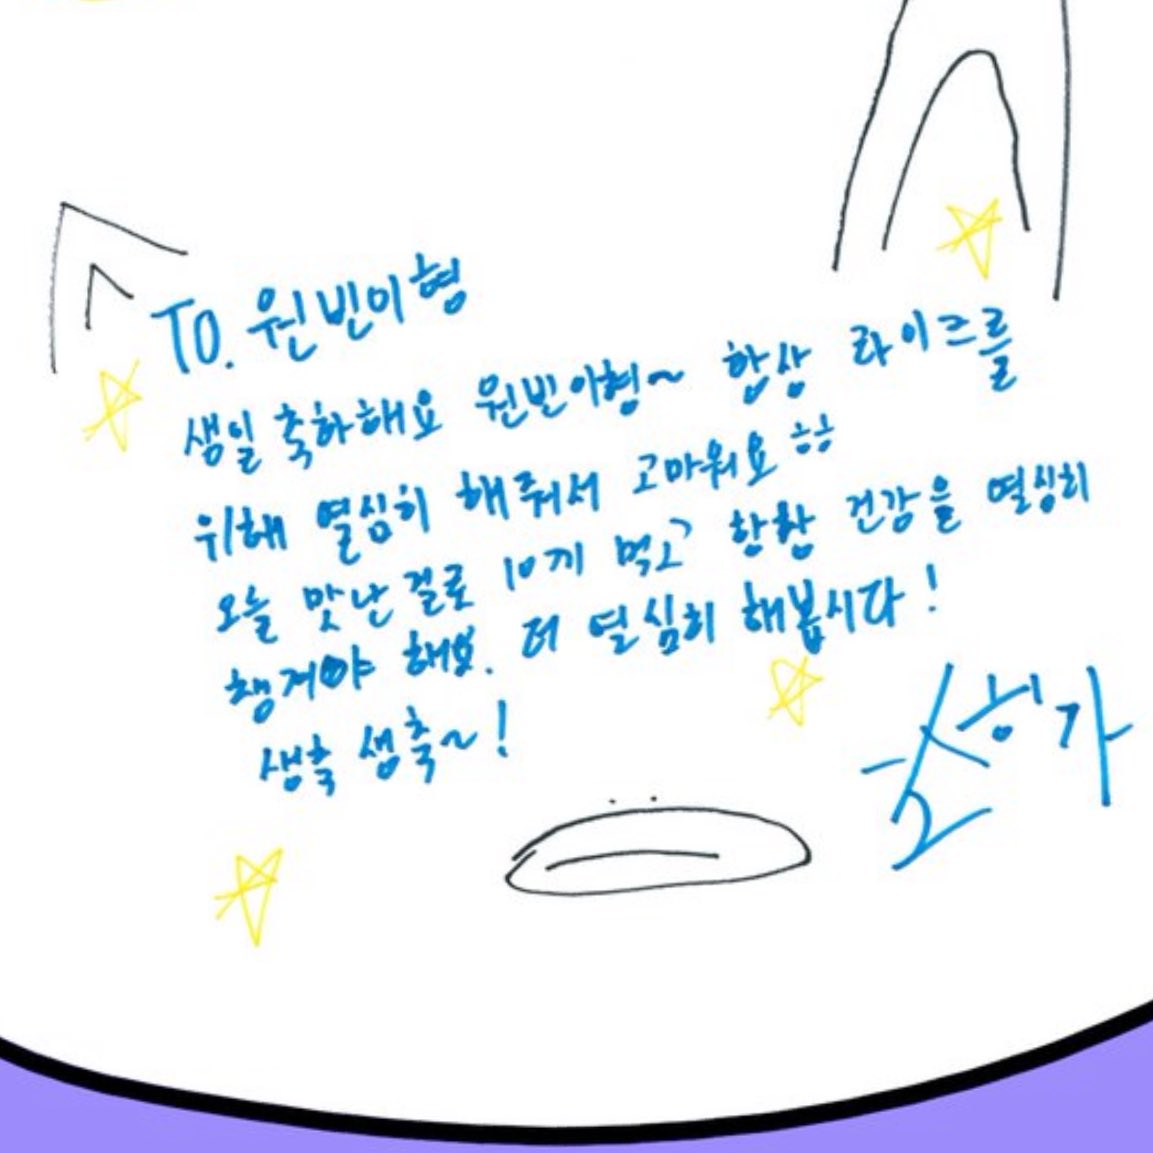 TO. 원빈이형
생일 축하해요 원빈이형~ 항상 라이즈를
위해 열심히 해줘서 고마워요 ㅎㅎ
오늘 맛난걸로 10끼 먹고 항항 건강을 열심히
챙겨야 해요. 더 열심히 해봅시다!
생축 생축~!